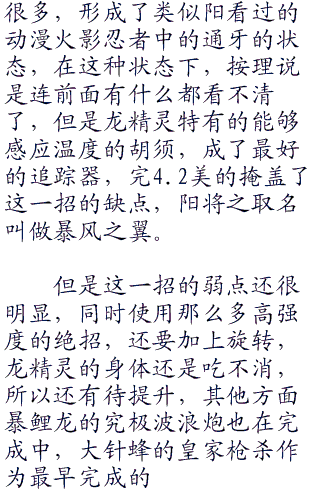 很多，形成了类似阳看过的
动漫火影忍者中的通牙的状
态，在这种状态下，按理说
是连前面有什么都看不清
了，但是龙精灵特有的能够
感应温度的胡须，成了最好
的追踪器，完4.2美的掩盖了
这一招的缺点，阳将之取名
叫做暴风之翼。
但是这一招的弱点还很
明显，同时使用那么多高强
度的绝招，还要加上旋转，
龙精灵的身体还是吃不消，
所以还有待提升，其他方面
暴鲤龙的究极波浪炮也在完
成中，大针蜂的皇家枪杀作
为最早完成的